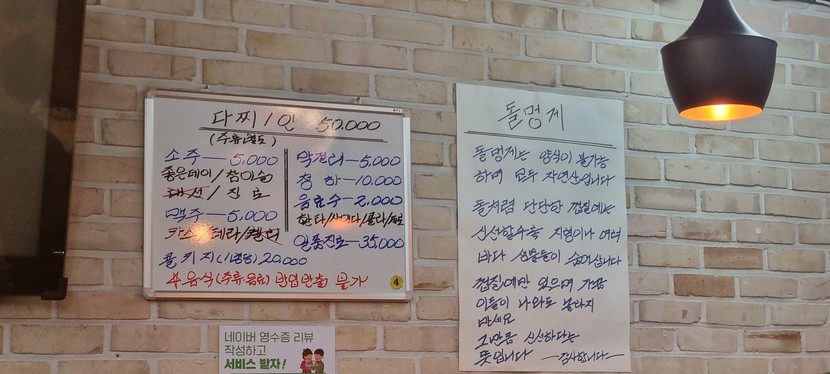 다찌 1인 50,000
(주류별도)
소주 — 5,000
좋은데이/참이슬
대선/진로
맥주 — 5,000
카스/테라/켈리
콜키지(1병당) 20,000
막걸리 — 5,000
청하 — 10,000
음료수 — 2,000
환타/사이다/콜라/제로
일품진로 — 35,000
* 음식(주류, 음료) 반입반출 불가
4
돌멍게
돌멍게는 양식이 불가능
하며 모두 자연산입니다
돌처럼 단단한 껍질에는
신선할수록 지렁이나 여러
바다 생물들이 숨어삽니다
껍질에만 있으며 가끔
이들이 나와도 놀라지
마세요
그만큼 신선하다는
뜻입니다 —감사합니다—
네이버 영수증 리뷰
작성하고
서비스 받자!